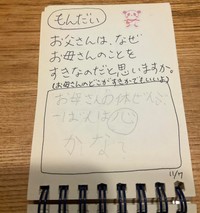 もんだい
お父さんは、なぜ
お母さんのことを
すきなのだと思いますか。
(お母さんのどこがすきかでもいいよ)
お母さんの体でいえ
ばん人は心
かな
11/7